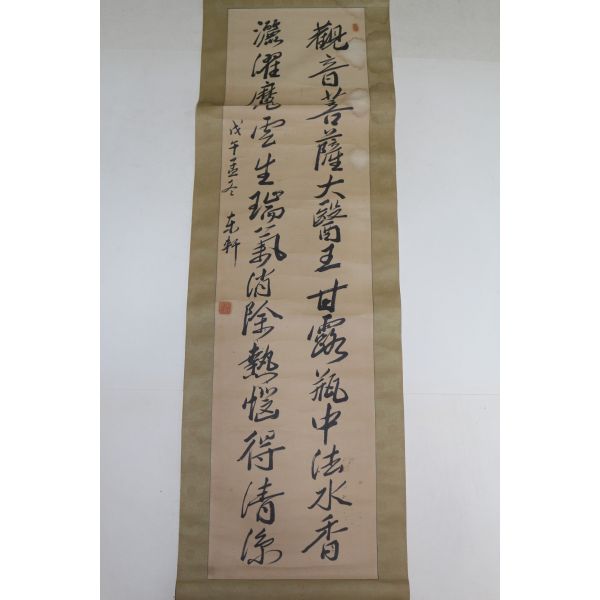 觀音菩薩大醫王甘露瓶中法水香
灑濯魔雲生瑞氣消除熱惱得清涼
戊午孟冬 東軒